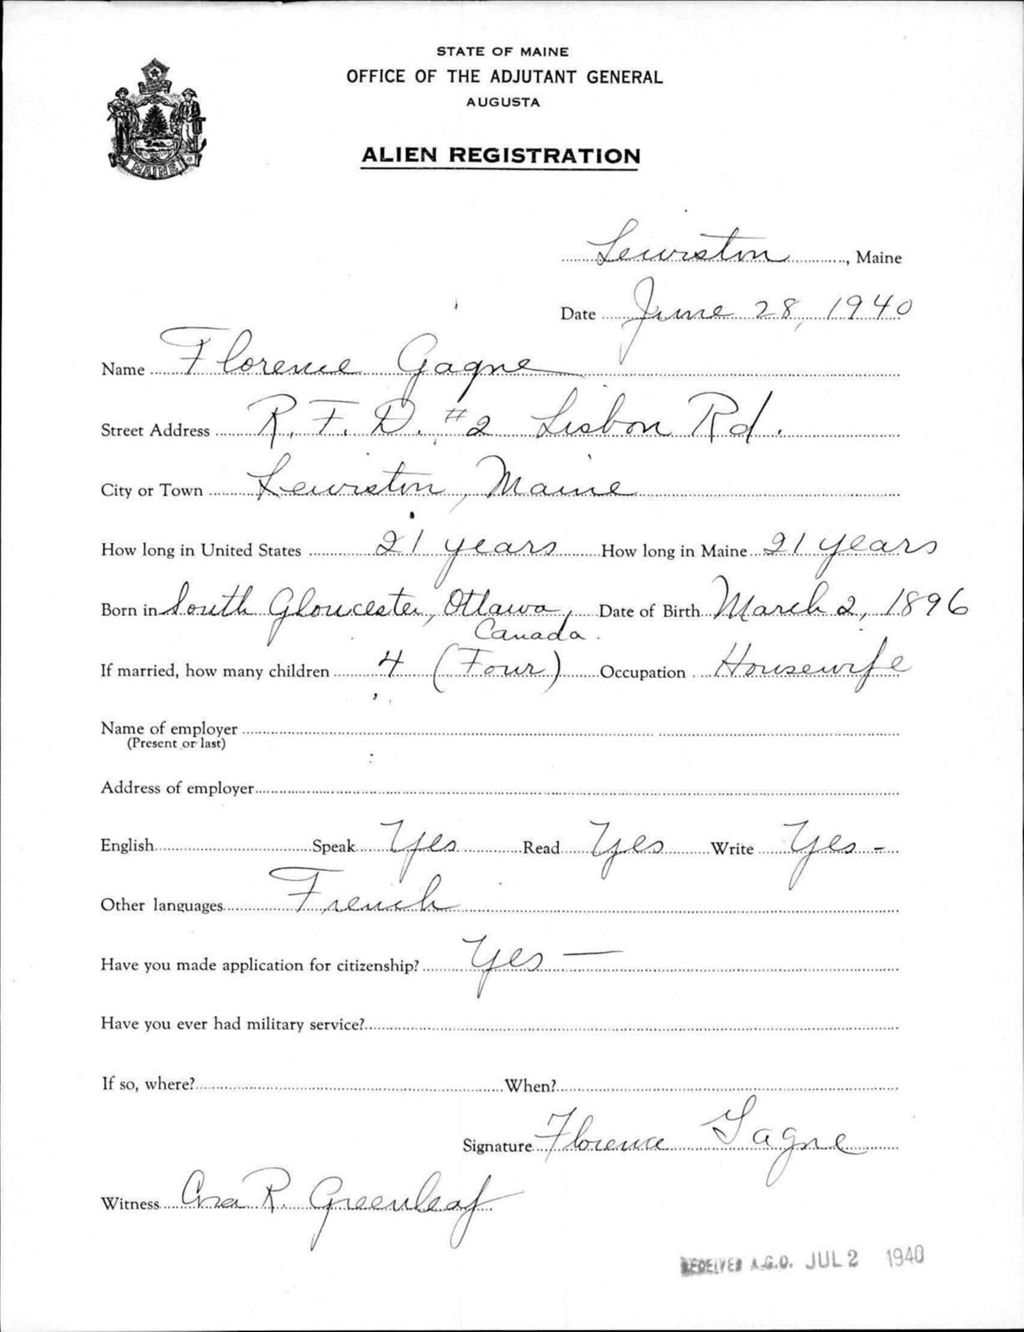 STATE OF MAINE
OFFICE OF THE ADJUTANT GENERAL
AUGUSTA
ALIEN REGISTRATION
MAINE
Lewiston, Maine
Date June 28, 1940
Name Florence Gagne
Street Address R.F.D. #2 Lisbon Rd.
City or Town Lewiston, Maine
How long in United States 21 years How long in Maine 21 years
Born in South Gloucester, Ottawa, Canada. Date of Birth March 2, 1896
If married, how many children 4 (Four) Occupation Housewife
Name of employer
(Present or last)
Address of employer
English Speak Yes Read Yes Write Yes -
Other languages French
Have you made application for citizenship? Yes —
Have you ever had military service?
If so, where? When?
Signature Florence Gagne
Witness Asa R. Greenleaf
RECEIVED A.G.O. JUL 2 1940